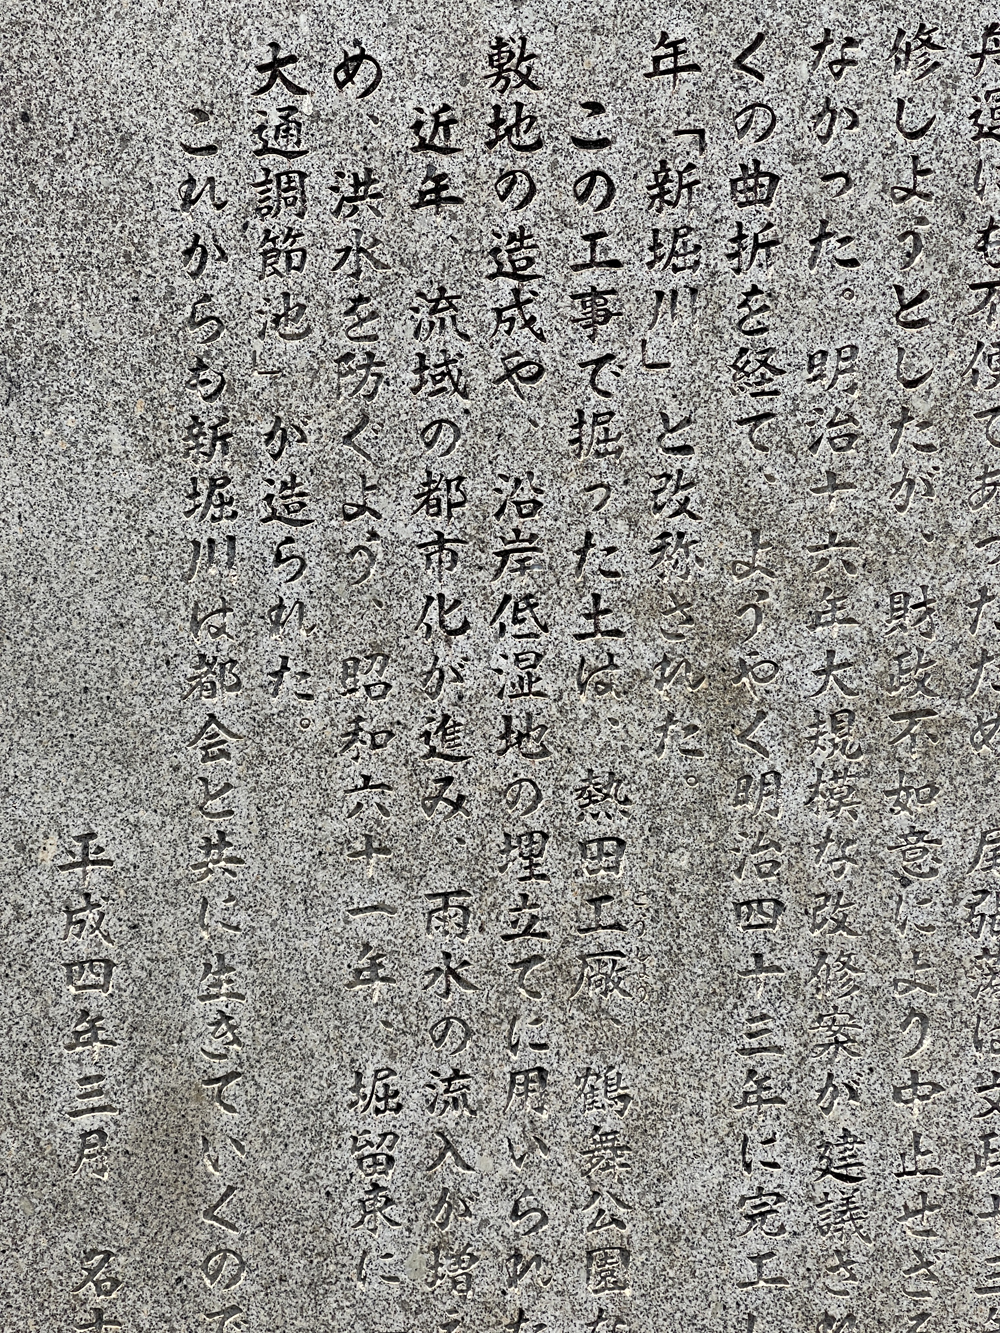 舟運にも不便であったため、尾張藩は文政十三
修しようとしたが、財政不如意により中止せざる
なかった。明治十六年大規模な改修案が建議され
くの曲折を経て、ようやく明治四十三年に完工し
年「新堀川」と改称された。
この工事で掘った土は、熱田工廠、鶴舞公園な
敷地の造成や、沿岸低湿地の埋立てに用いられた
近年、流域の都市化が進み、雨水の流入が増え
め、洪水を防ぐよう、昭和六十一年、堀留東に
大通調節池」が造られた。
これからも新堀川は都会と共に生きていくので
平成四年三月 名古